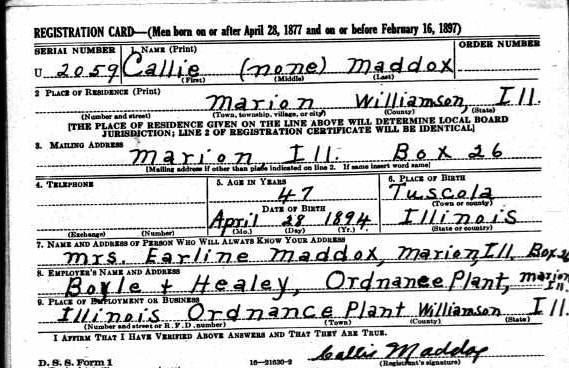 REGISTRATION CARD—(Men born on or after April 28, 1877 and on or before February 16, 1897)
SERIAL NUMBER 1. NAME (Print) ORDER NUMBER
U 2059 Callie (none) Maddox
(First) (Middle) (Last)
2 PLACE OF RESIDENCE (Print)
Marion Williamson, Ill.
(Number and street) (Town, township, village, or city) (County) (State)
[THE PLACE OF RESIDENCE GIVEN ON THE LINE ABOVE WILL DETERMINE LOCAL BOARD
JURISDICTION; LINE 2 OF REGISTRATION CERTIFICATE WILL BE IDENTICAL]
3. MAILING ADDRESS
Marion Ill. Box 26
[Mailing address if other than place indicated on line 2. If same insert word same]
4. TELEPHONE 5. AGE IN YEARS 6. PLACE OF BIRTH
47 Tuscola
DATE OF BIRTH (Town or county)
April 28 1894 Illinois
(Exchange) (Number) (Mo.) (Day) (Yr.) (State or country)
7. NAME AND ADDRESS OF PERSON WHO WILL ALWAYS KNOW YOUR ADDRESS
Mrs. Earline Maddox, Marion Ill. Box 26
8. EMPLOYER'S NAME AND ADDRESS
Boyle + Healey, Ordnance Plant, Marion Ill.
9. PLACE OF EMPLOYMENT OR BUSINESS
Illinois Ordnance Plant Williamson Ill.
(Number and street or R. F. D. number) (Town) (County) (State)
I AFFIRM THAT I HAVE VERIFIED ABOVE ANSWERS AND THAT THEY ARE TRUE.
Callie Maddox
D. S. S. Form 1 16—21630-2 (Registrant's signature)